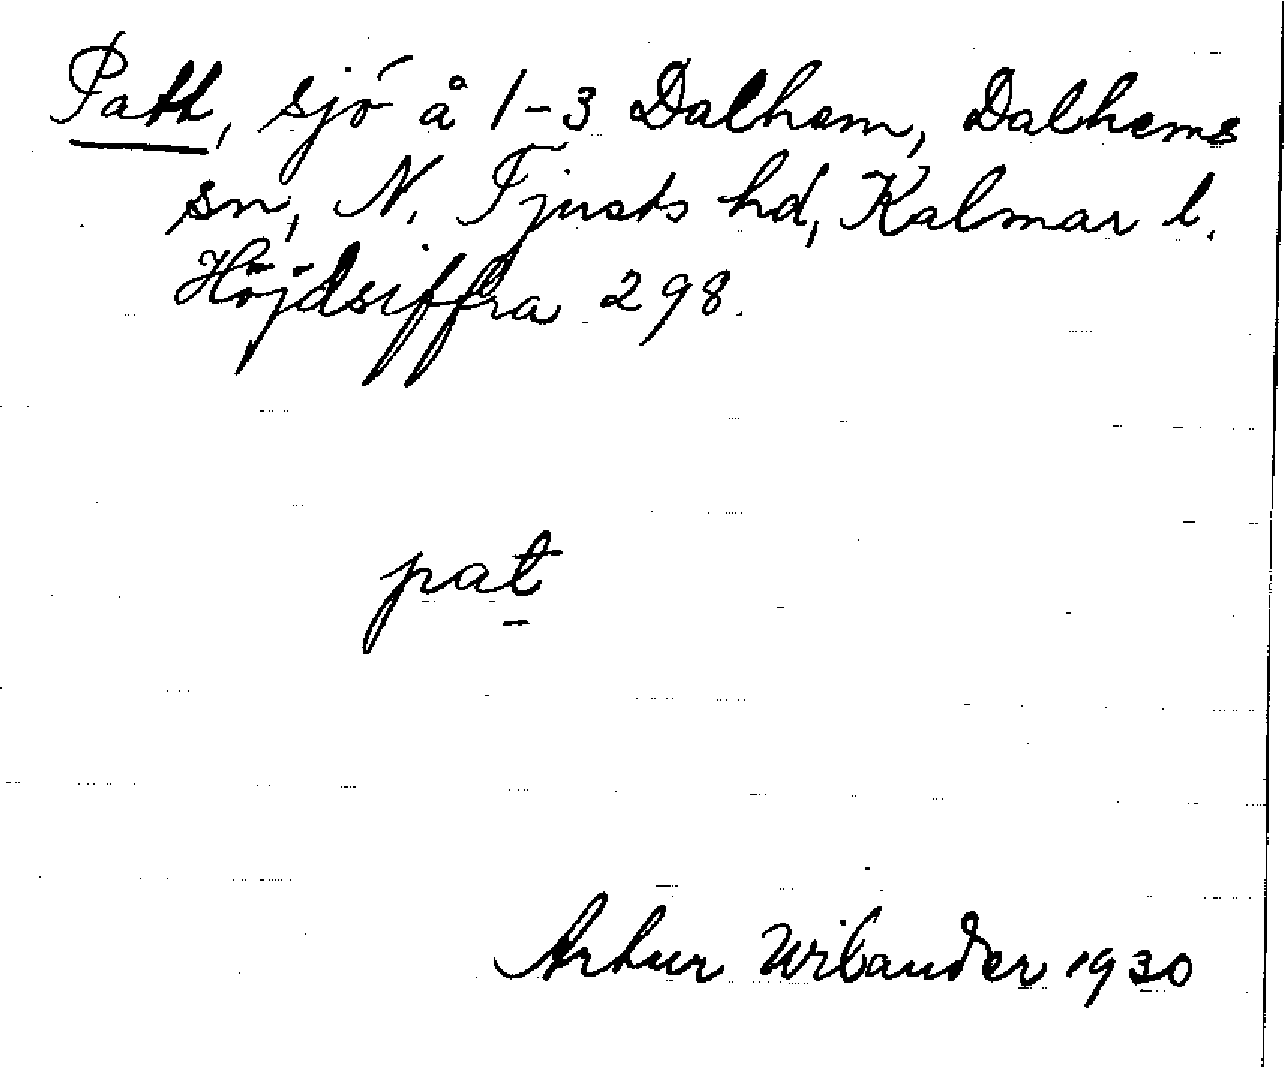 Patt, sjö å 1-3 Dalhem, Dalhems
sn, N. Tjusts hd, Kalmar l.
Höjdsiffra 298.
pat̲
Artur Wilander 1930